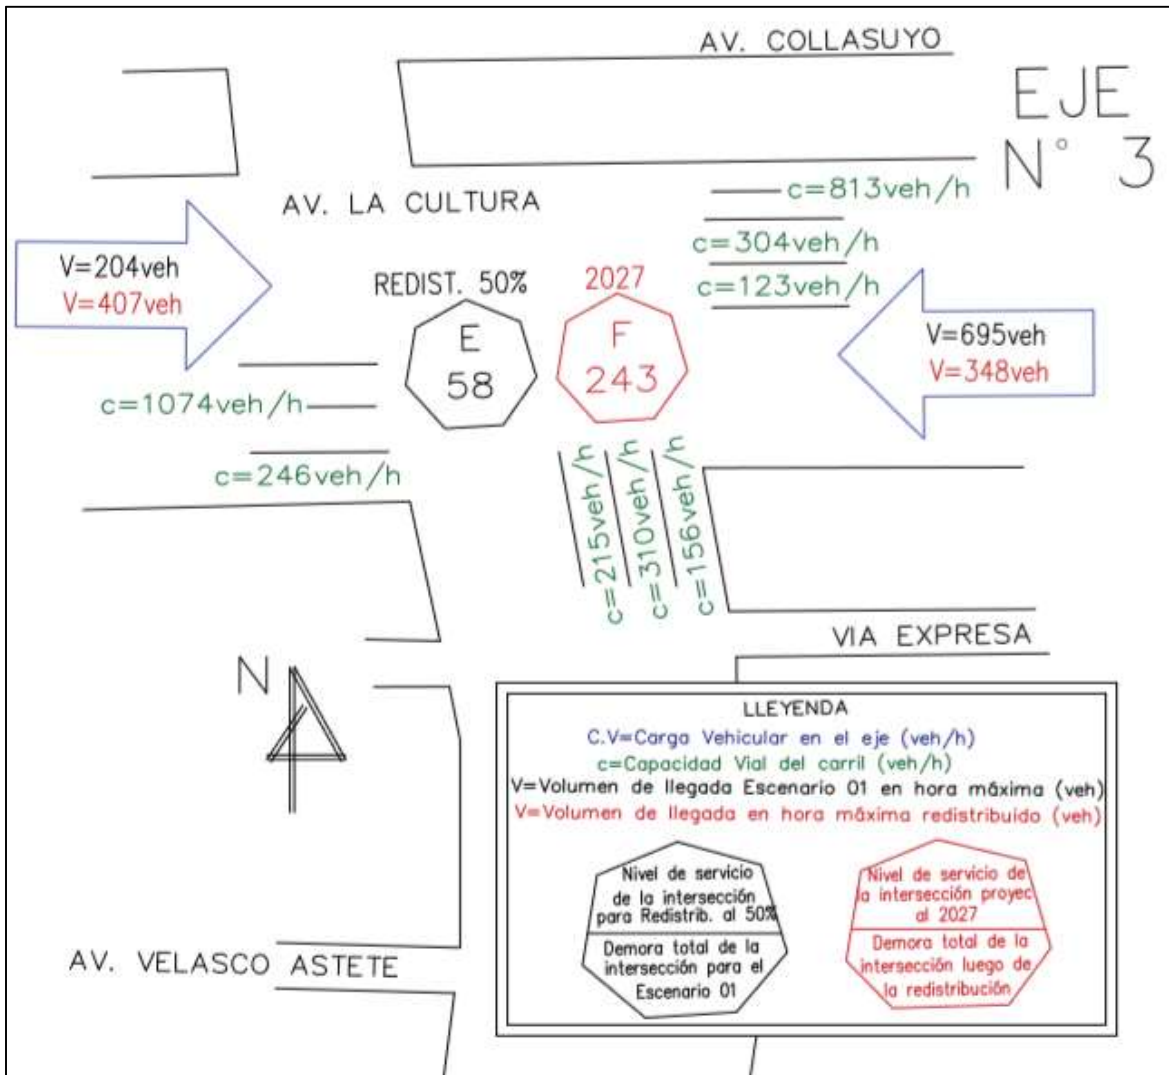 AV. COLLASUYO
EJE
N° 3
AV. LA CULTURA
c=813veh/h
c=304veh/h
c=123veh/h
V=204veh
V=407veh
REDIST. 50%
E
58
2027
F
243
V=695veh
V=348veh
c=1074veh/h
c=246veh/h
c=215veh/h
c=310veh/h
c=156veh/h
VIA EXPRESA
N
LLEYENDA
C.V=Carga Vehicular en el eje (veh/h)
c=Capacidad Vial del carril (veh/h)
V=Volumen de llegada Escenario 01 en hora máxima (veh)
V=Volumen de llegada en hora máxima redistribuido (veh)
Nivel de servicio
de la intersección
para Redistrib. al 50%
Demora total de la
intersección para el
Escenario 01
Nivel de servicio de
la intersección proyec
al 2027
Demora total de la
intersección luego de
la redistribución
AV. VELASCO ASTETE